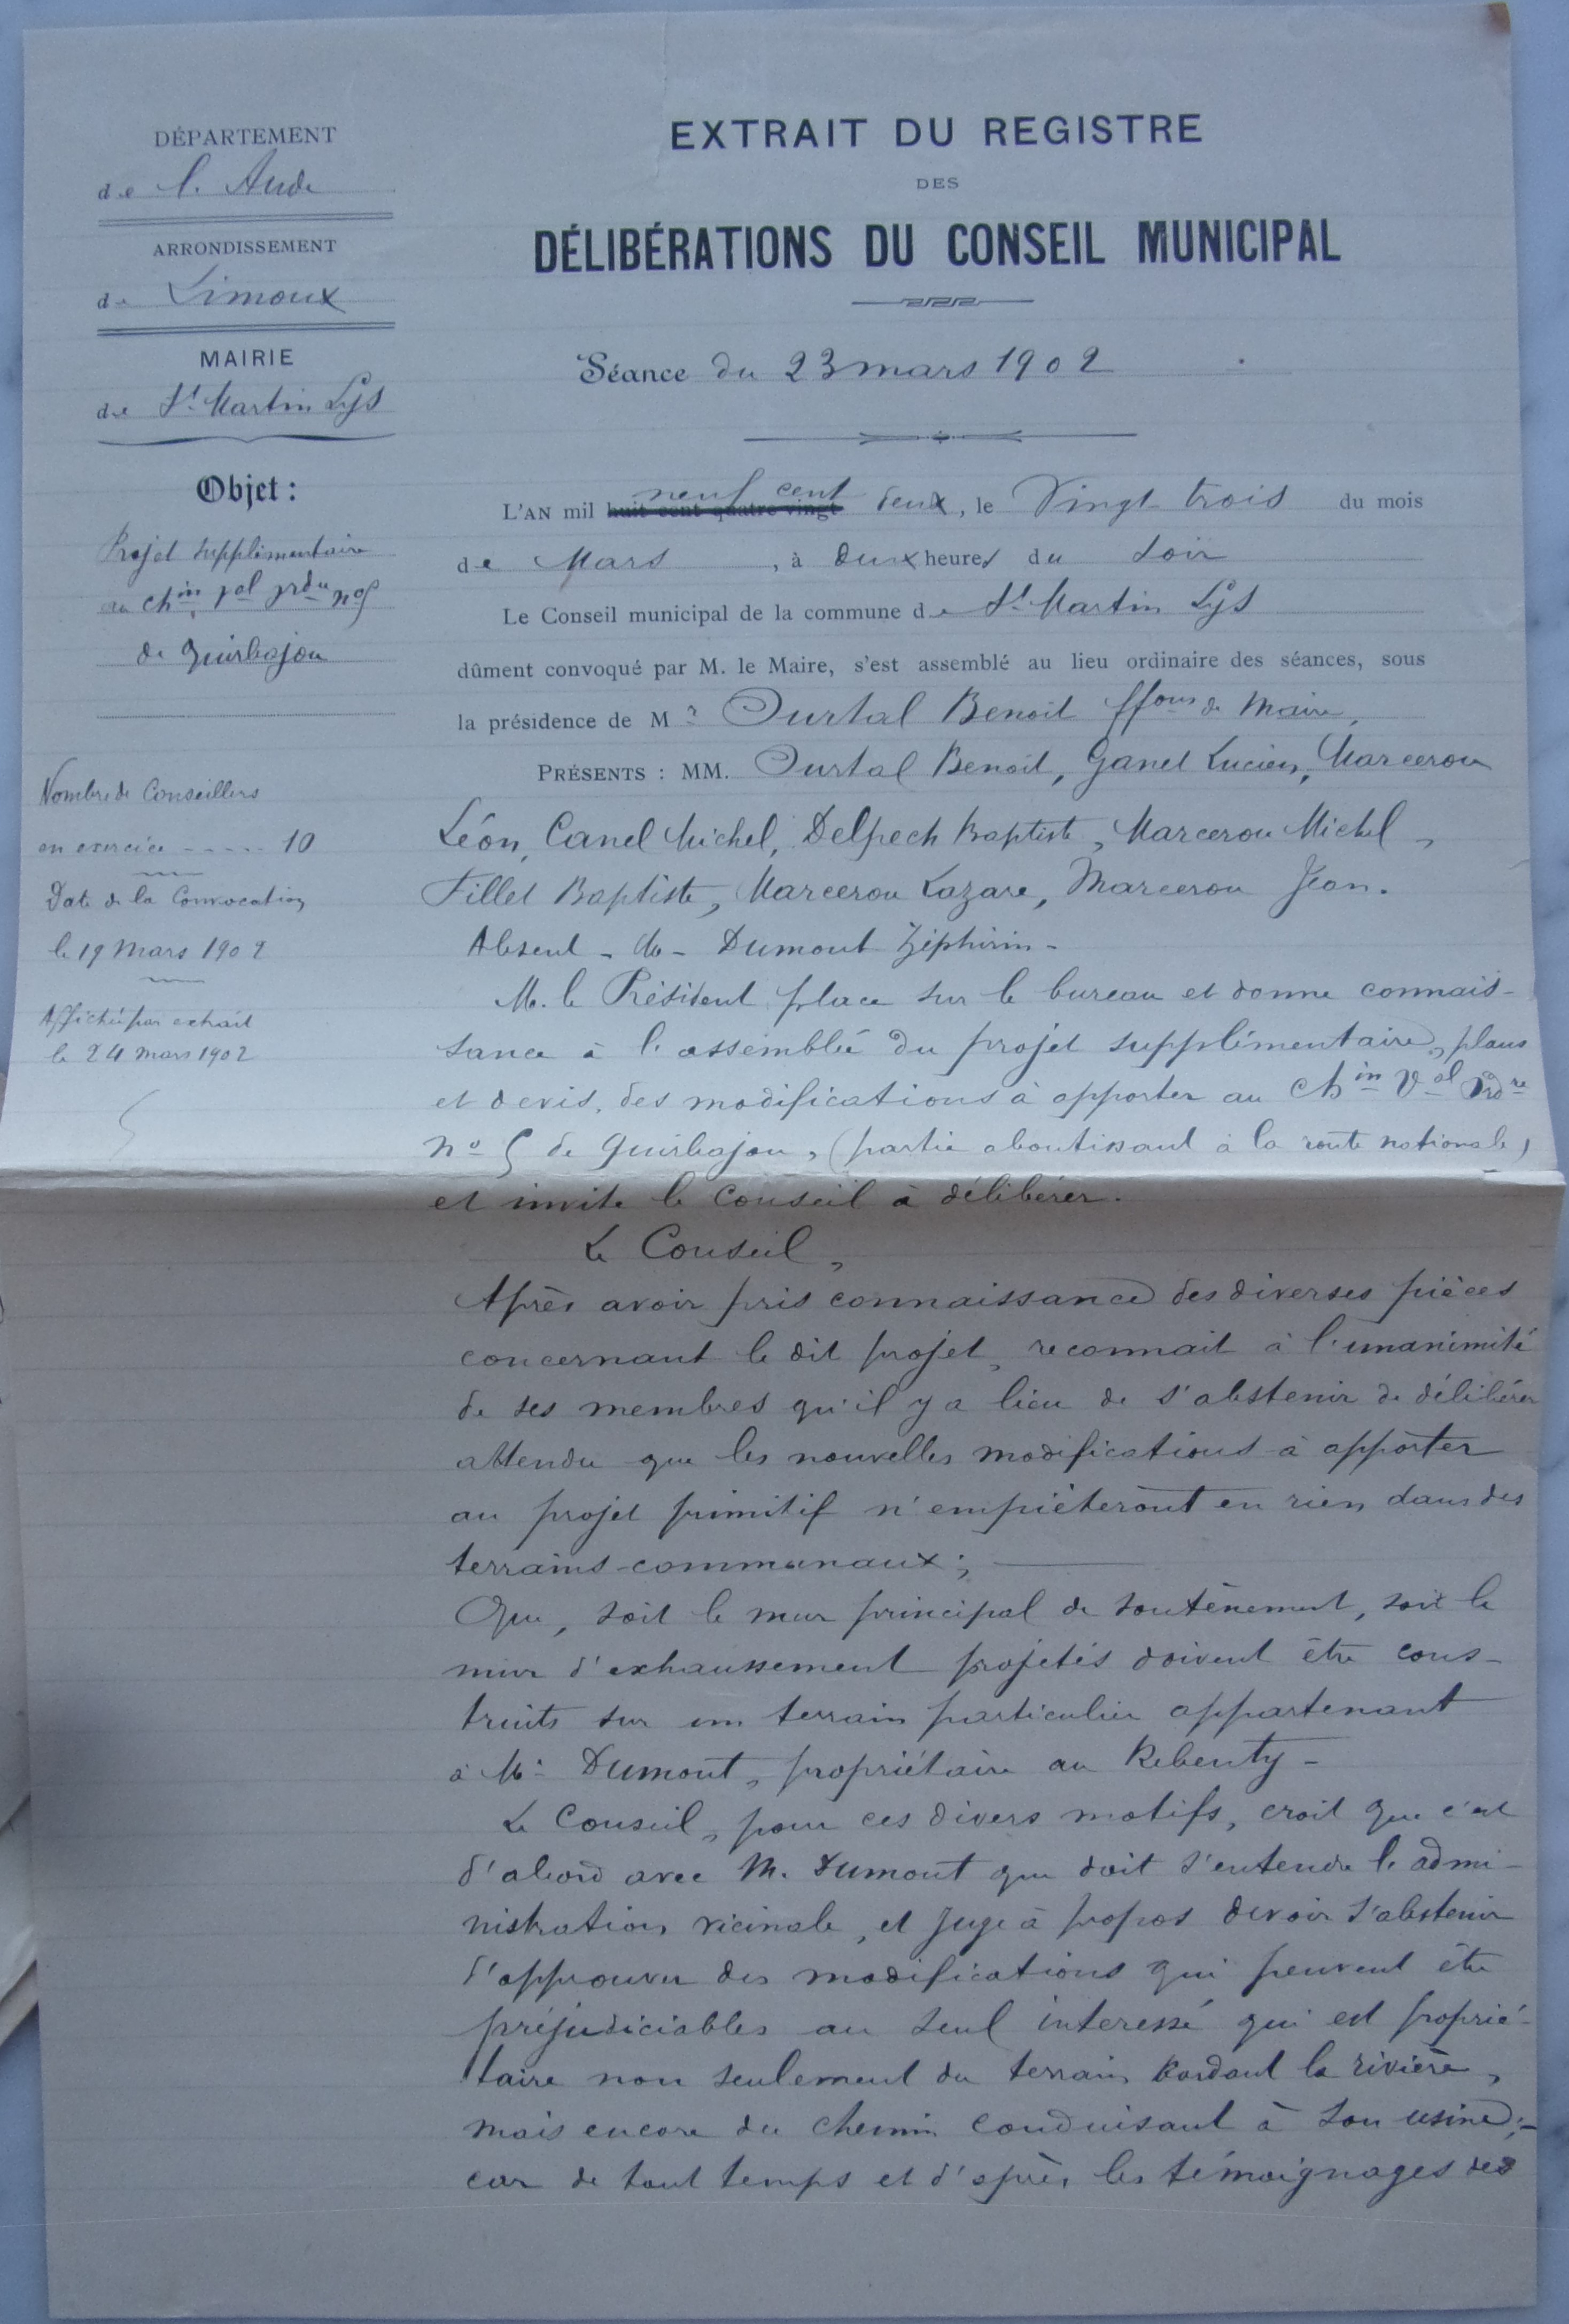 DÉPARTEMENT
de l'Aude
ARRONDISSEMENT
de Limoux
MAIRIE
de St Martin Lys
Objet :
Projet supplémentaire
au chin
de Quirbajou
Nombre de Conseillers
en exercice ----- 10
Date de la Convocation
le 19 Mars 1902
Affiché par extrait
le 24 mars 1902
EXTRAIT DU REGISTRE
DES
DÉLIBÉRATIONS DU CONSEIL MUNICIPAL
Séance du 23 mars 1902
L'AN mil huit cent quatre-vingt neuf cent deux, le Vingt trois du mois
de Mars, à deux heures du soir
Le Conseil municipal de la commune de St Martin Lys
dûment convoqué par M. le Maire, s'est assemblé au lieu ordinaire des séances, sous
la présidence de Mr Ourtal Benoit ffons de Maire,
PRÉSENTS : MM. Ourtal Benoit, Ganet Lucien, Marcerou
Léon, Canel Michel, Delpech Baptiste, Marcerou Michel,
Fillet Baptiste, Marcerou Lazare, Marcerou Jean.
Absent - M - Dumont Zéphirin -
M. le Président place sur le bureau et donne connais-
sance à l'assemblée du projet supplémentaire, plans
et devis, des modifications à apporter au chin Val Ordre
no 5 de Quirbajou, (partie aboutissant à la route nationale)
et invite le Conseil à délibérer.
Le Conseil,
Après avoir pris connaissance des diverses pièces
concernant le dit projet, reconnait à l'unanimité
de ses membres qu'il y a lieu de s'abstenir de délibérer
attendu que les nouvelles modifications à apporter
au projet primitif n'empièteront en rien dans des
terrains communaux ;
Que, soit le mur principal de soutènement, soit le
mur d'exhaussement projetés doivent être cons-
truits sur un terrain particulier appartenant
à M. Dumont, propriétaire au Rebenty -
Le Conseil, pour ces divers motifs, croit que c'est
d'abord avec M. Dumont que doit s'entendre l'admi-
nistration vicinale, et juge à propos devoir s'abstenir
d'approuver des modifications qui peuvent être
préjudiciables au seul interessé qui est proprié-
taire non seulement du terrain bordant la rivière,
mais encore du chemin conduisant à son usine ;-
car de tout temps et d'après les témoignages des